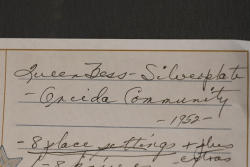 Queen Bess - Silverplate
- Oneida Community
- 1952 -
- 8 place settings + plus
extras
- 8